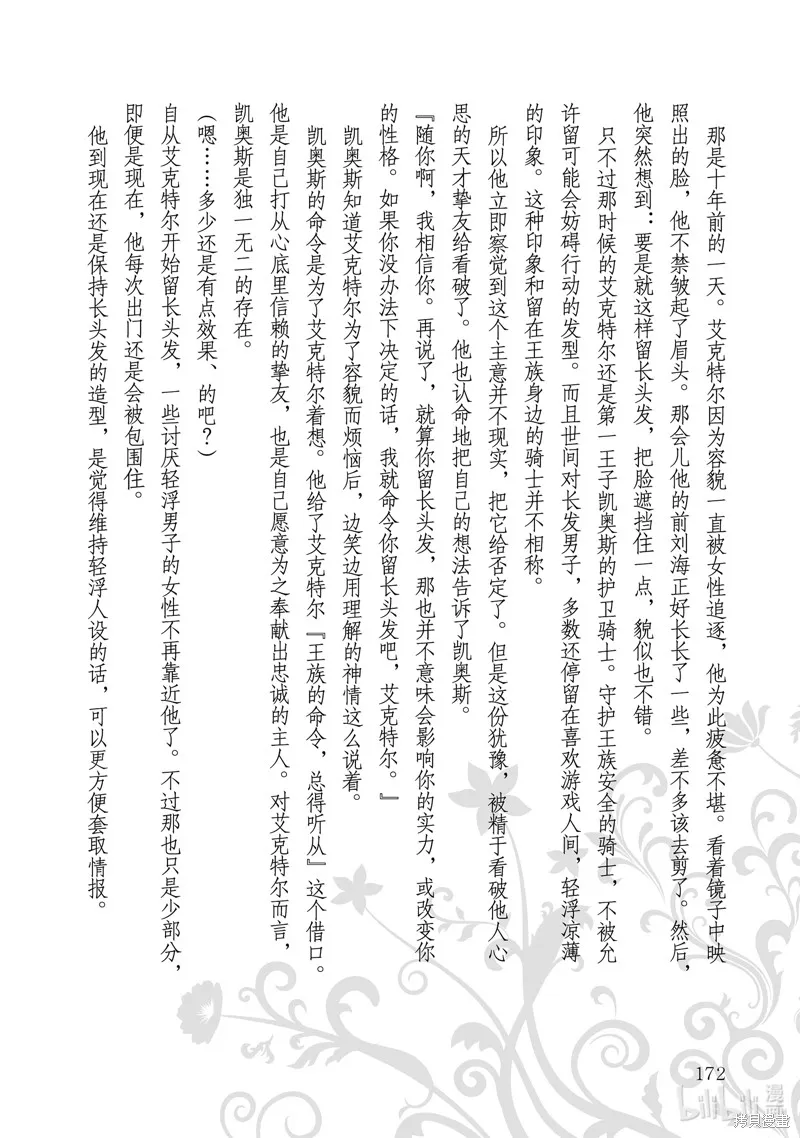 那是十年前的一天。艾克特尔因为容貌一直被女性追逐，他为此疲惫不堪。看着镜子中映
照出的脸，他不禁皱起了眉头。那会儿他的前刘海正好长长了一些，差不多该去剪了。然后，
他突然想到：要是就这样留长头发，把脸遮挡住一点，貌似也不错。
只不过那时候的艾克特尔还是第一王子凯奥斯的护卫骑士。守护王族安全的骑士，不被允
许留可能会妨碍行动的发型。而且世间对长发男子，多数还停留在喜欢游戏人间，轻浮凉薄
的印象。这种印象和留在王族身边的骑士并不相称。
所以他立即察觉到这个主意并不现实，把它给否定了。但是这份犹豫，被精于看破他人心
思的天才挚友给看破了。他也认命地把自己的想法告诉了凯奥斯。
『随你啊，我相信你。再说了，就算你留长头发，那也并不意味会影响你的实力，或改变你
的性格。如果你没办法下决定的话，我就命令你留长头发吧，艾克特尔。』
凯奥斯知道艾克特尔为了容貌而烦恼后，边笑边用理解的神情这么说着。
凯奥斯的命令是为了艾克特尔着想。他给了艾克特尔『王族的命令，总得听从』这个借口。
他是自己打从心底里信赖的挚友，也是自己愿意为之奉献出忠诚的主人。对艾克特尔而言，
凯奥斯是独一无二的存在。
（嗯……多少还是有点效果、的吧？）
自从艾克特尔开始留长头发，一些讨厌轻浮男子的女性不再靠近他了。不过那也只是少部分，
即便是现在，他每次出门还是会被包围住。
他到现在还是保持长头发的造型，是觉得维持轻浮人设的话，可以更方便套取情报。
172
bilibili 漫画
拷貝漫畫